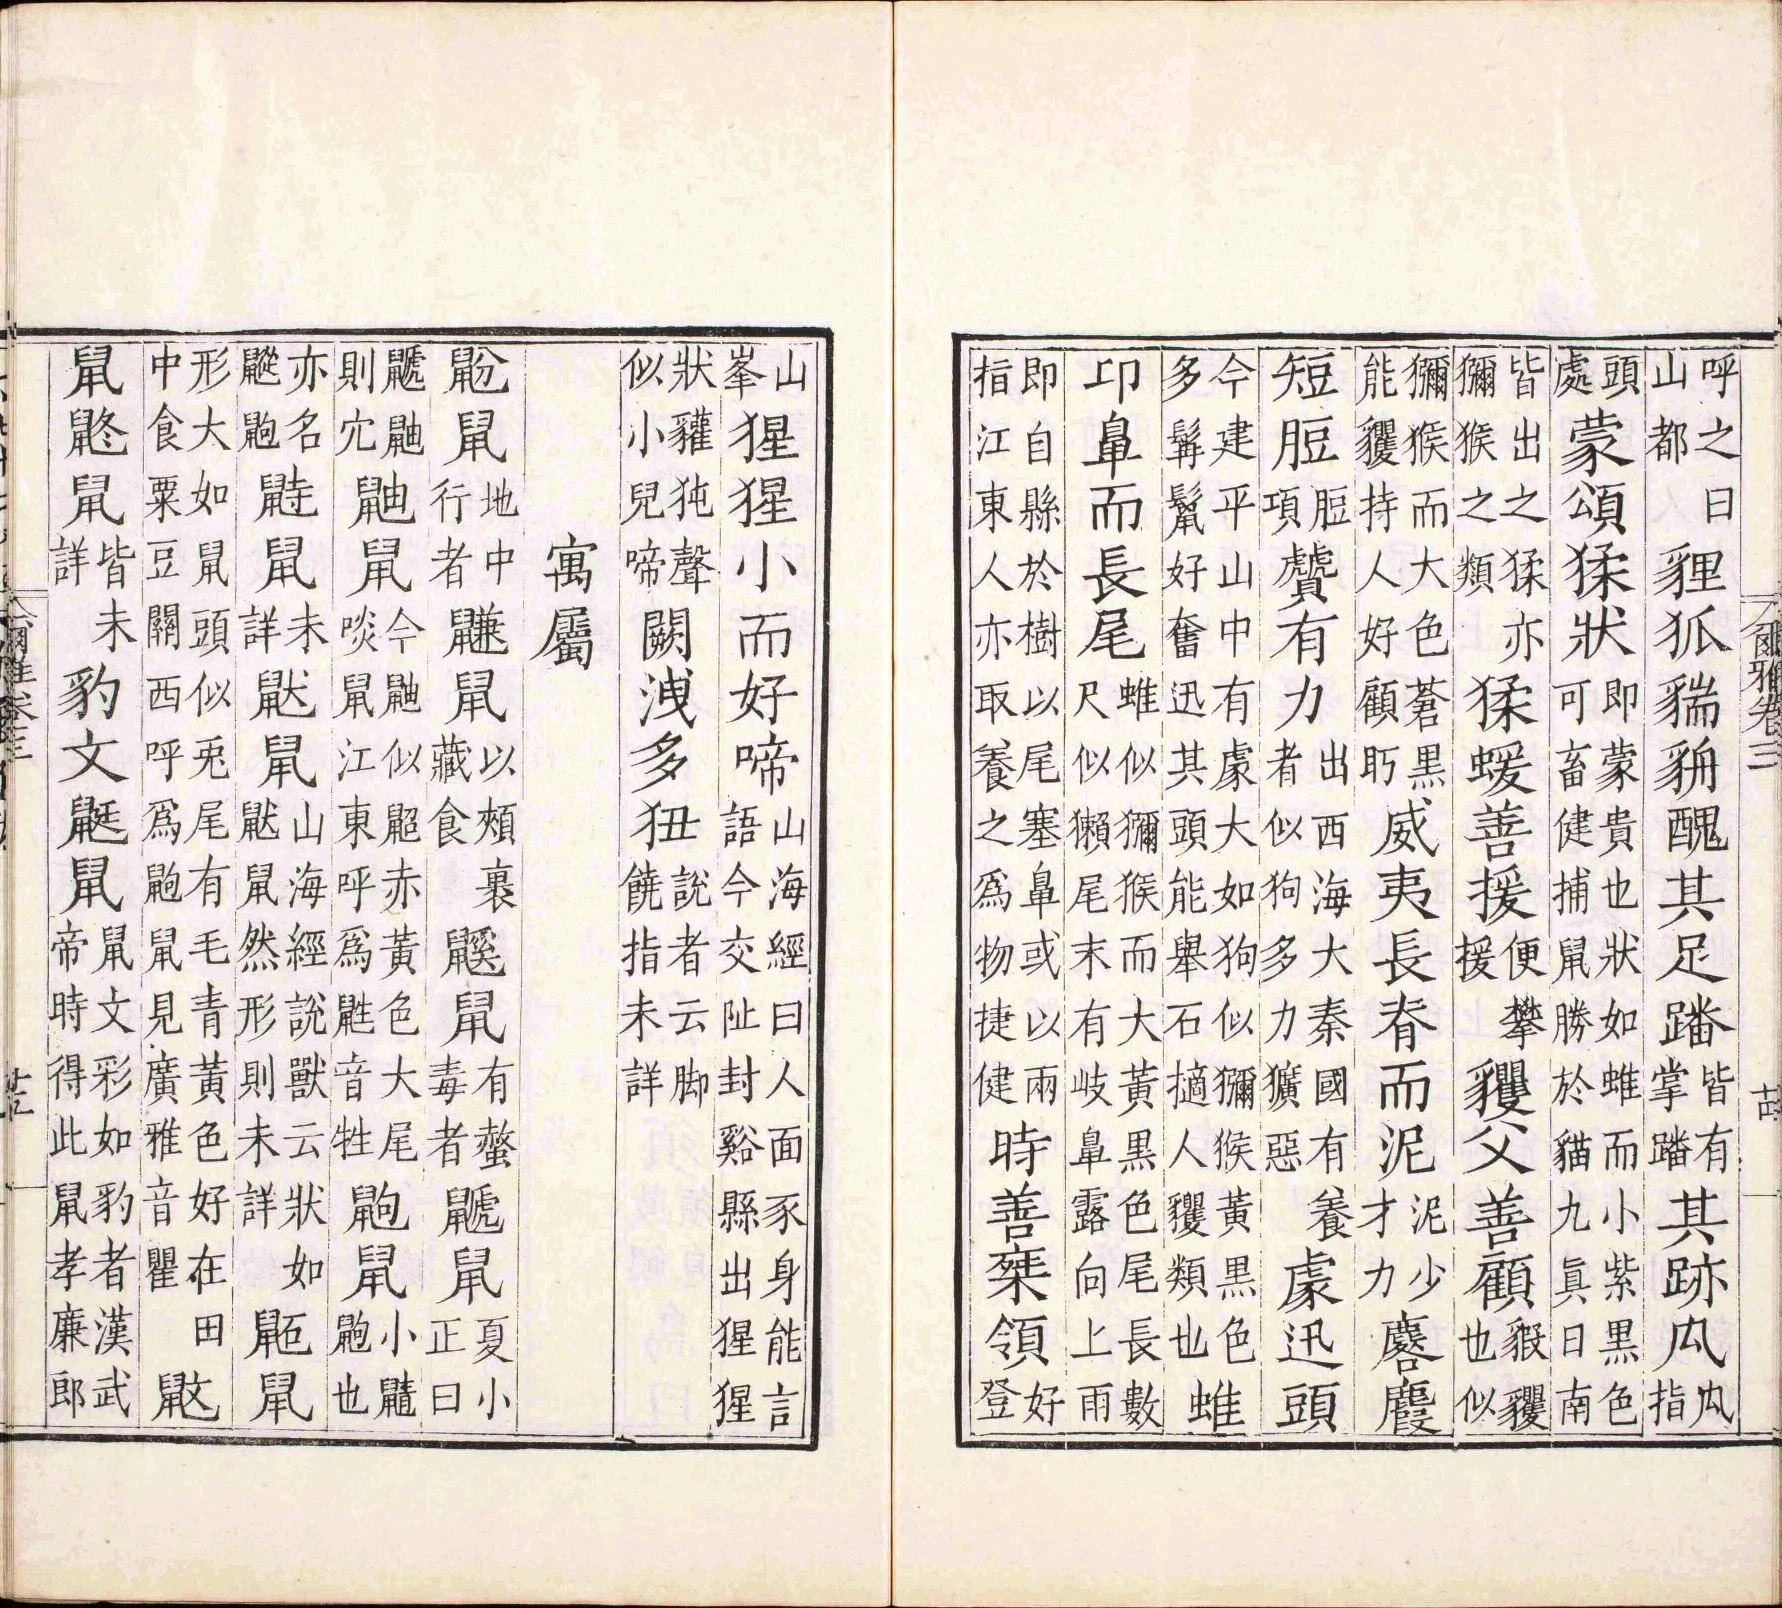 爾雅卷三
呼之曰山都貍狐貒貈醜其足蹯皆有掌蹯其跡禸禸指
頭處蒙頌猱狀即蒙貴也狀如蜼而小紫黑色可畜健捕鼠勝於貓九眞日南
皆出之猱亦獼猴之類猱蝯善援便攀援貜父善顧貑貜也似
獼猴而大色蒼黑能貜持人好顧盻威夷長脊而泥泥少才力麔麚
短脰脰項贙有力出西海大秦國有養者似狗多力獷惡豦迅頭
今建平山中有豦大如狗似獼猴黃黑色多髯鬣好奮迅其頭能舉石擿人貜類也蜼
卬鼻而長尾蜼似獼猴而大黃黑色尾長數尺似獺尾末有岐鼻露向上雨
即自縣於樹以尾塞鼻或以兩指江東人亦取養之爲物捷健時善椉領好登
山峯猩猩小而好啼山海經曰人面豕身能言語今交阯封谿縣出猩猩
狀貛㹠聲似小兒啼闕洩多狃說者云脚饒指未詳
寓屬
鼢鼠地中行者鼸鼠以頰裹藏食鼷鼠有螫毒者鼶鼠夏小正曰
鼶鼬則穴鼬鼠今鼬似鼦赤黃色大尾啖鼠江東呼爲鼪音牲鼩鼠小鼱鼩也
亦名鼨鼩鼭鼠未詳鼣鼠山海經說獸云狀如鼣鼠然形則未詳鼫鼠
形大如鼠頭似兎尾有毛青黃色好在田中食粟豆關西呼爲鼩鼠見廣雅音瞿鼤
鼠鼨鼠皆未詳豹文鼮鼠鼠文彩如豹者漢武帝時得此鼠孝廉郎
爾雅卷三